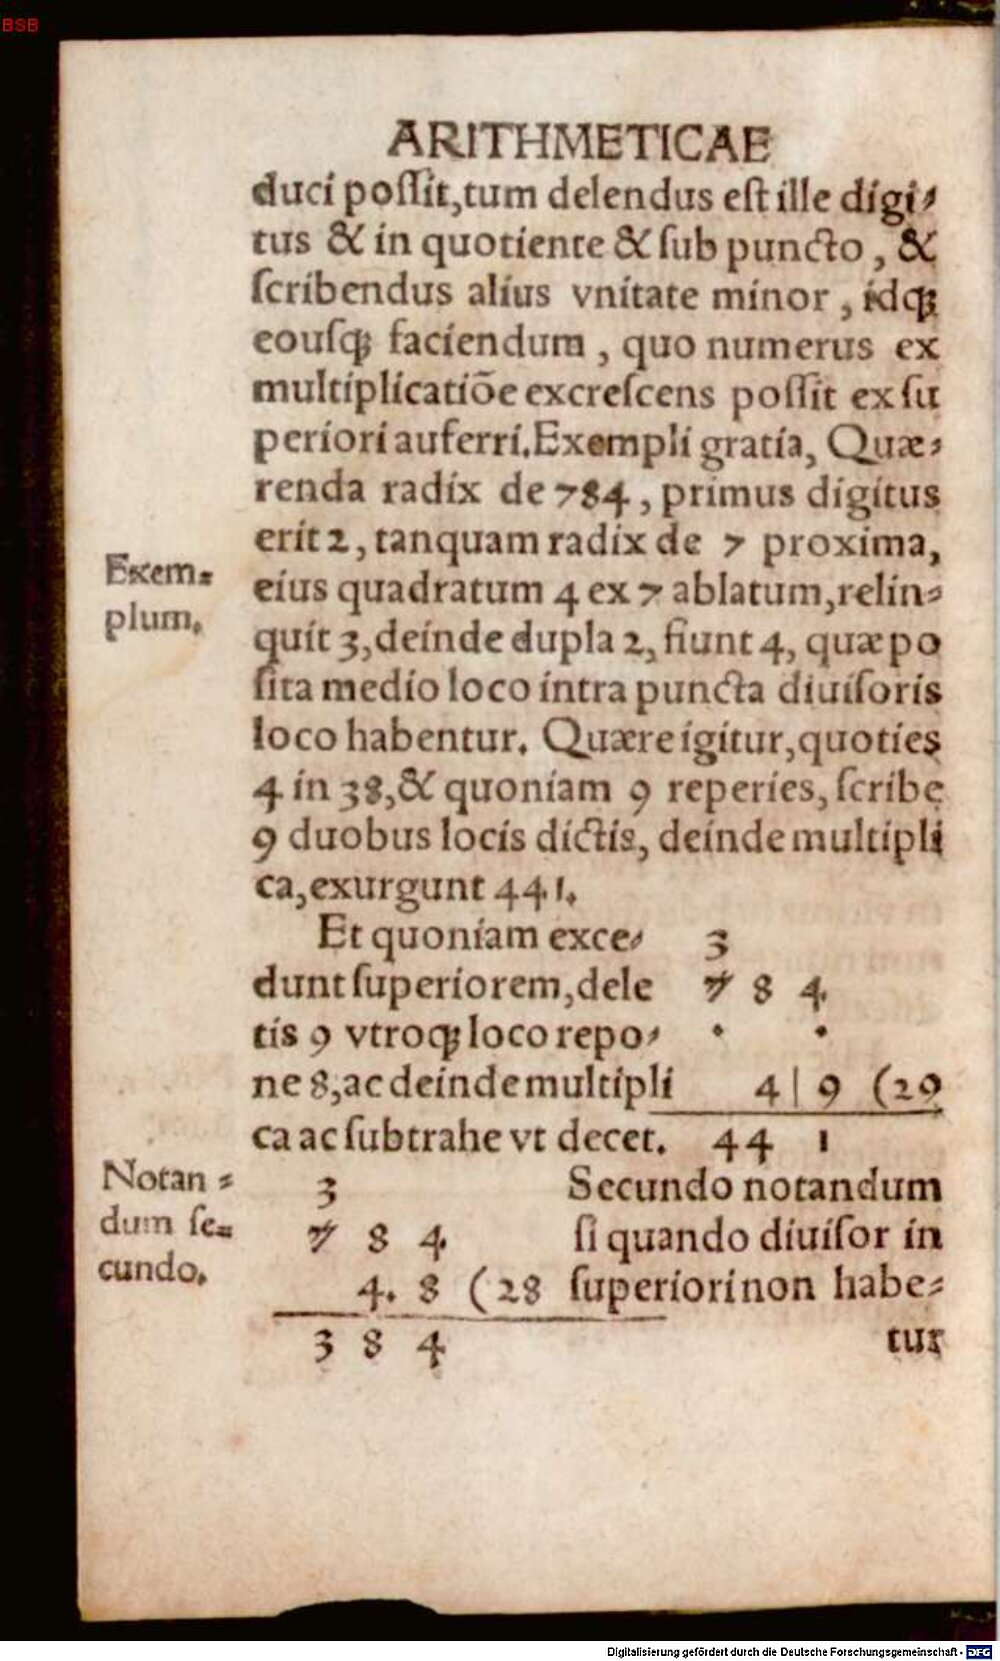 BSB
ARITHMETICAE
duci poſſit,tum delendus eſt ille digi⸗
tus & in quotiente & ſub puncto , &
ſcribendus alius vnitate minor , idq;
eouſq; faciendum , quo numerus ex
multiplicatiõe excreſcens poſſit ex ſu
periori auferri.Exempli gratia, Quæ⸗
renda radix de 784 , primus digitus
erit 2, tanquam radix de 7 proxima,
Exem⸗
eius quadratum 4 ex 7 ablatum,relin⸗
plum.
quit 3,deinde dupla 2, fiunt 4, quæ po
ſita medio loco intra puncta diuiſoris
loco habentur. Quære igitur,quoties
4 in 38,& quoniam 9 reperies, ſcribe
9 duobus locis dictis, deinde multipli
ca,exurgunt 441.
Et quoniam exce⸗ 3
dunt ſuperiorem,dele 7 8 4
tis 9 vtroq; loco repo⸗ . .
ne 8,ac deinde multipli 4 | 9 (29
ca ac ſubtrahe vt decet. 44 1
Notan⸗
dum ſe⸗
cundo.
3 Secundo notandum
7 8 4 ſi quando diuiſor in
4. 8 (28 ſuperiori non habe⸗
3 8 4 tur
Digitalisierung gefördert durch die Deutsche Forschungsgemeinschaft - DFG